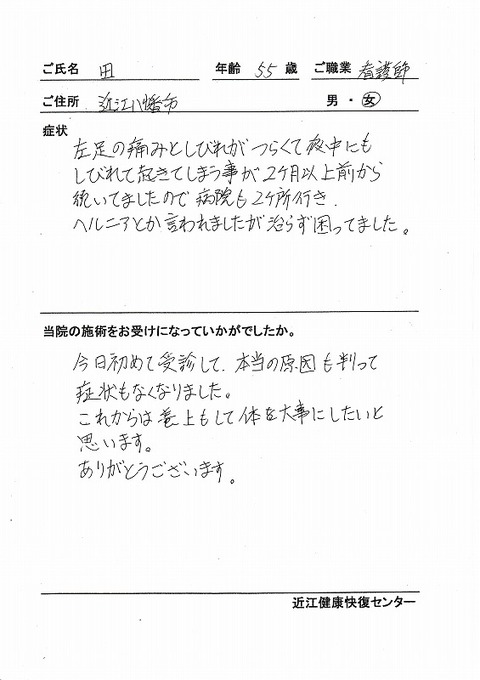 ご氏名 田 年齢 55 歳 ご職業 看護師
ご住所 近江八幡市 男・女
症状
左足の痛みとしびれがつらくて夜中にも
しびれて起きてしまう事が2ケ月以上前から
続いてましたので病院も2ケ所行き、
ヘルニアとか言われましたが治らず困ってました。
当院の施術をお受けになっていかがでしたか。
今日初めて受診して、本当の原因も判って
症状もなくなりました。
これからは 上もして体を大事にしたいと
思います。
ありがとうございます。
近江健康快復センター